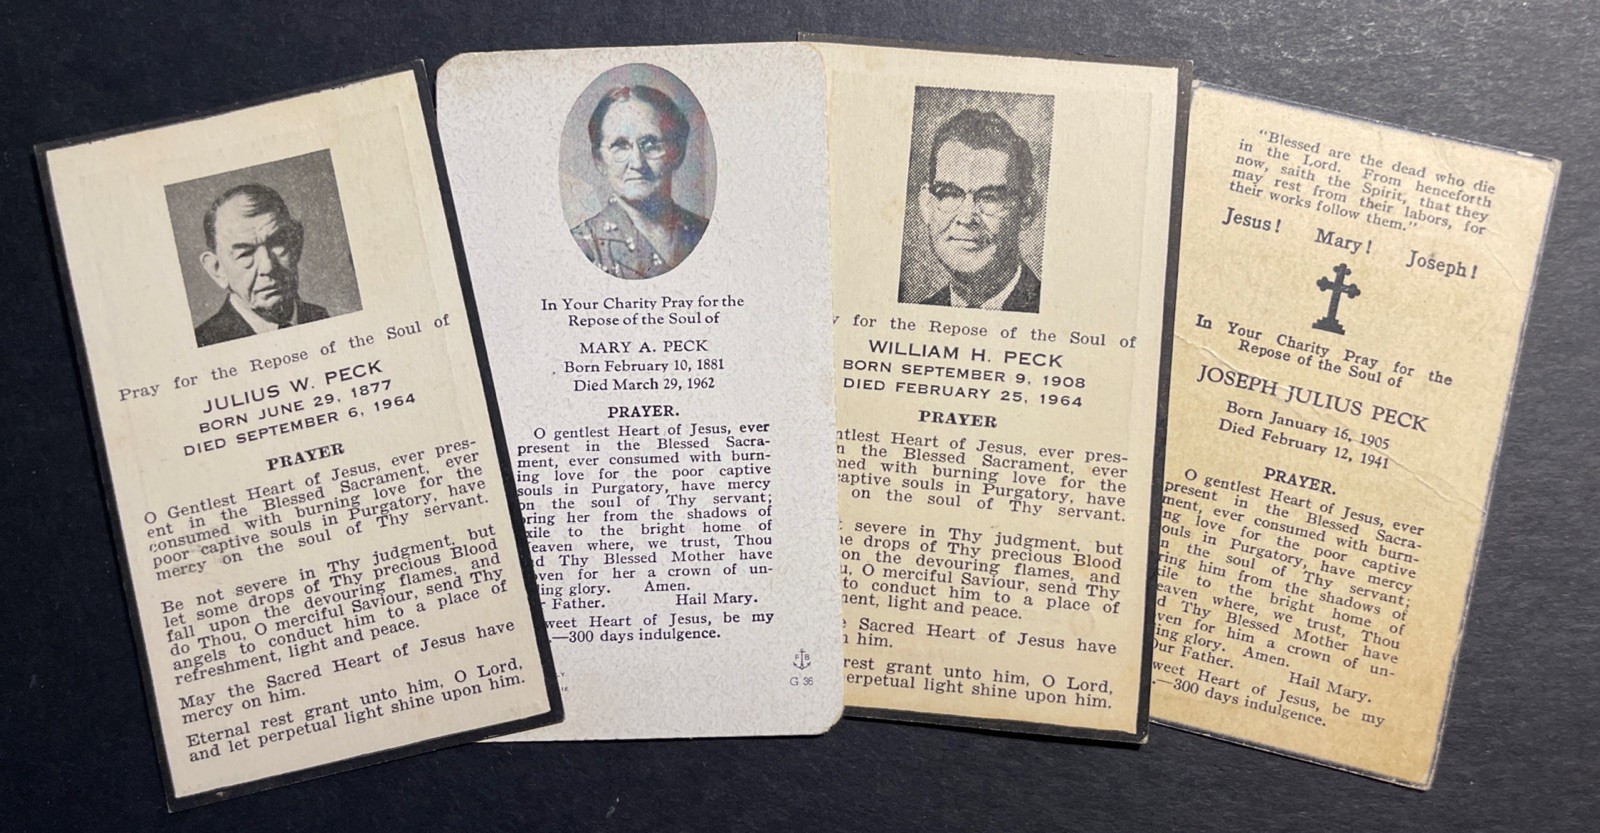 Pray for the Repose of the Soul of
JULIUS W. PECK
BORN JUNE 29, 1877
DIED SEPTEMBER 6, 1964
PRAYER
O Gentlest Heart of Jesus, ever pres-
ent in the Blessed Sacrament, ever
consumed with burning love for the
poor captive souls in Purgatory, have
mercy on the soul of Thy servant.
Be not severe in Thy judgment, but
let some drops of Thy precious Blood
fall upon the devouring flames, and
do Thou, O merciful Saviour, send Thy
angels to conduct him to a place of
refreshment, light and peace.
May the Sacred Heart of Jesus have
mercy on him.
Eternal rest grant unto him, O Lord,
and let perpetual light shine upon him.
In Your Charity Pray for the
Repose of the Soul of
MARY A. PECK
Born February 10, 1881
Died March 29, 1962
PRAYER.
O gentlest Heart of Jesus, ever
present in the Blessed Sacra-
ment, ever consumed with burn-
ing love for the poor captive
souls in Purgatory, have mercy
on the soul of Thy servant;
bring her from the shadows of
exile to the bright home of
heaven where, we trust, Thou
and Thy Blessed Mother have
woven for her a crown of un-
ding glory. Amen.
Father. Hail Mary.
weet Heart of Jesus, be my
.—300 days indulgence.
F B
G 36
for the Repose of the Soul of
WILLIAM H. PECK
BORN SEPTEMBER 9, 1908
DIED FEBRUARY 25, 1964
PRAYER
ntlest Heart of Jesus, ever pres-
n the Blessed Sacrament, ever
med with burning love for the
captive souls in Purgatory, have
on the soul of Thy servant.
severe in Thy judgment, but
e drops of Thy precious Blood
on the devouring flames, and
u, O merciful Saviour, send Thy
to conduct him to a place of
ment, light and peace.
Sacred Heart of Jesus have
him.
rest grant unto him, O Lord,
erpetual light shine upon him.
"Blessed are the dead who die
in the Lord. From henceforth
now, saith the Spirit, that they
may rest from their labors, for
their works follow them."
Jesus! Mary! Joseph!
In Your Charity Pray for the
Repose of the Soul of
JOSEPH JULIUS PECK
Born January 16, 1905
Died February 12, 1941
PRAYER.
O gentlest Heart of Jesus, ever
present in the Blessed Sacra-
ment, ever consumed with burn-
ing love for the poor captive
souls in Purgatory, have mercy
on the soul of Thy servant;
ring him from the shadows of
xile to the bright home of
eaven where, we trust, Thou
d Thy Blessed Mother have
ven for him a crown of un-
ing glory. Amen.
Our Father. Hail Mary.
weet Heart of Jesus, be my
.—300 days indulgence.